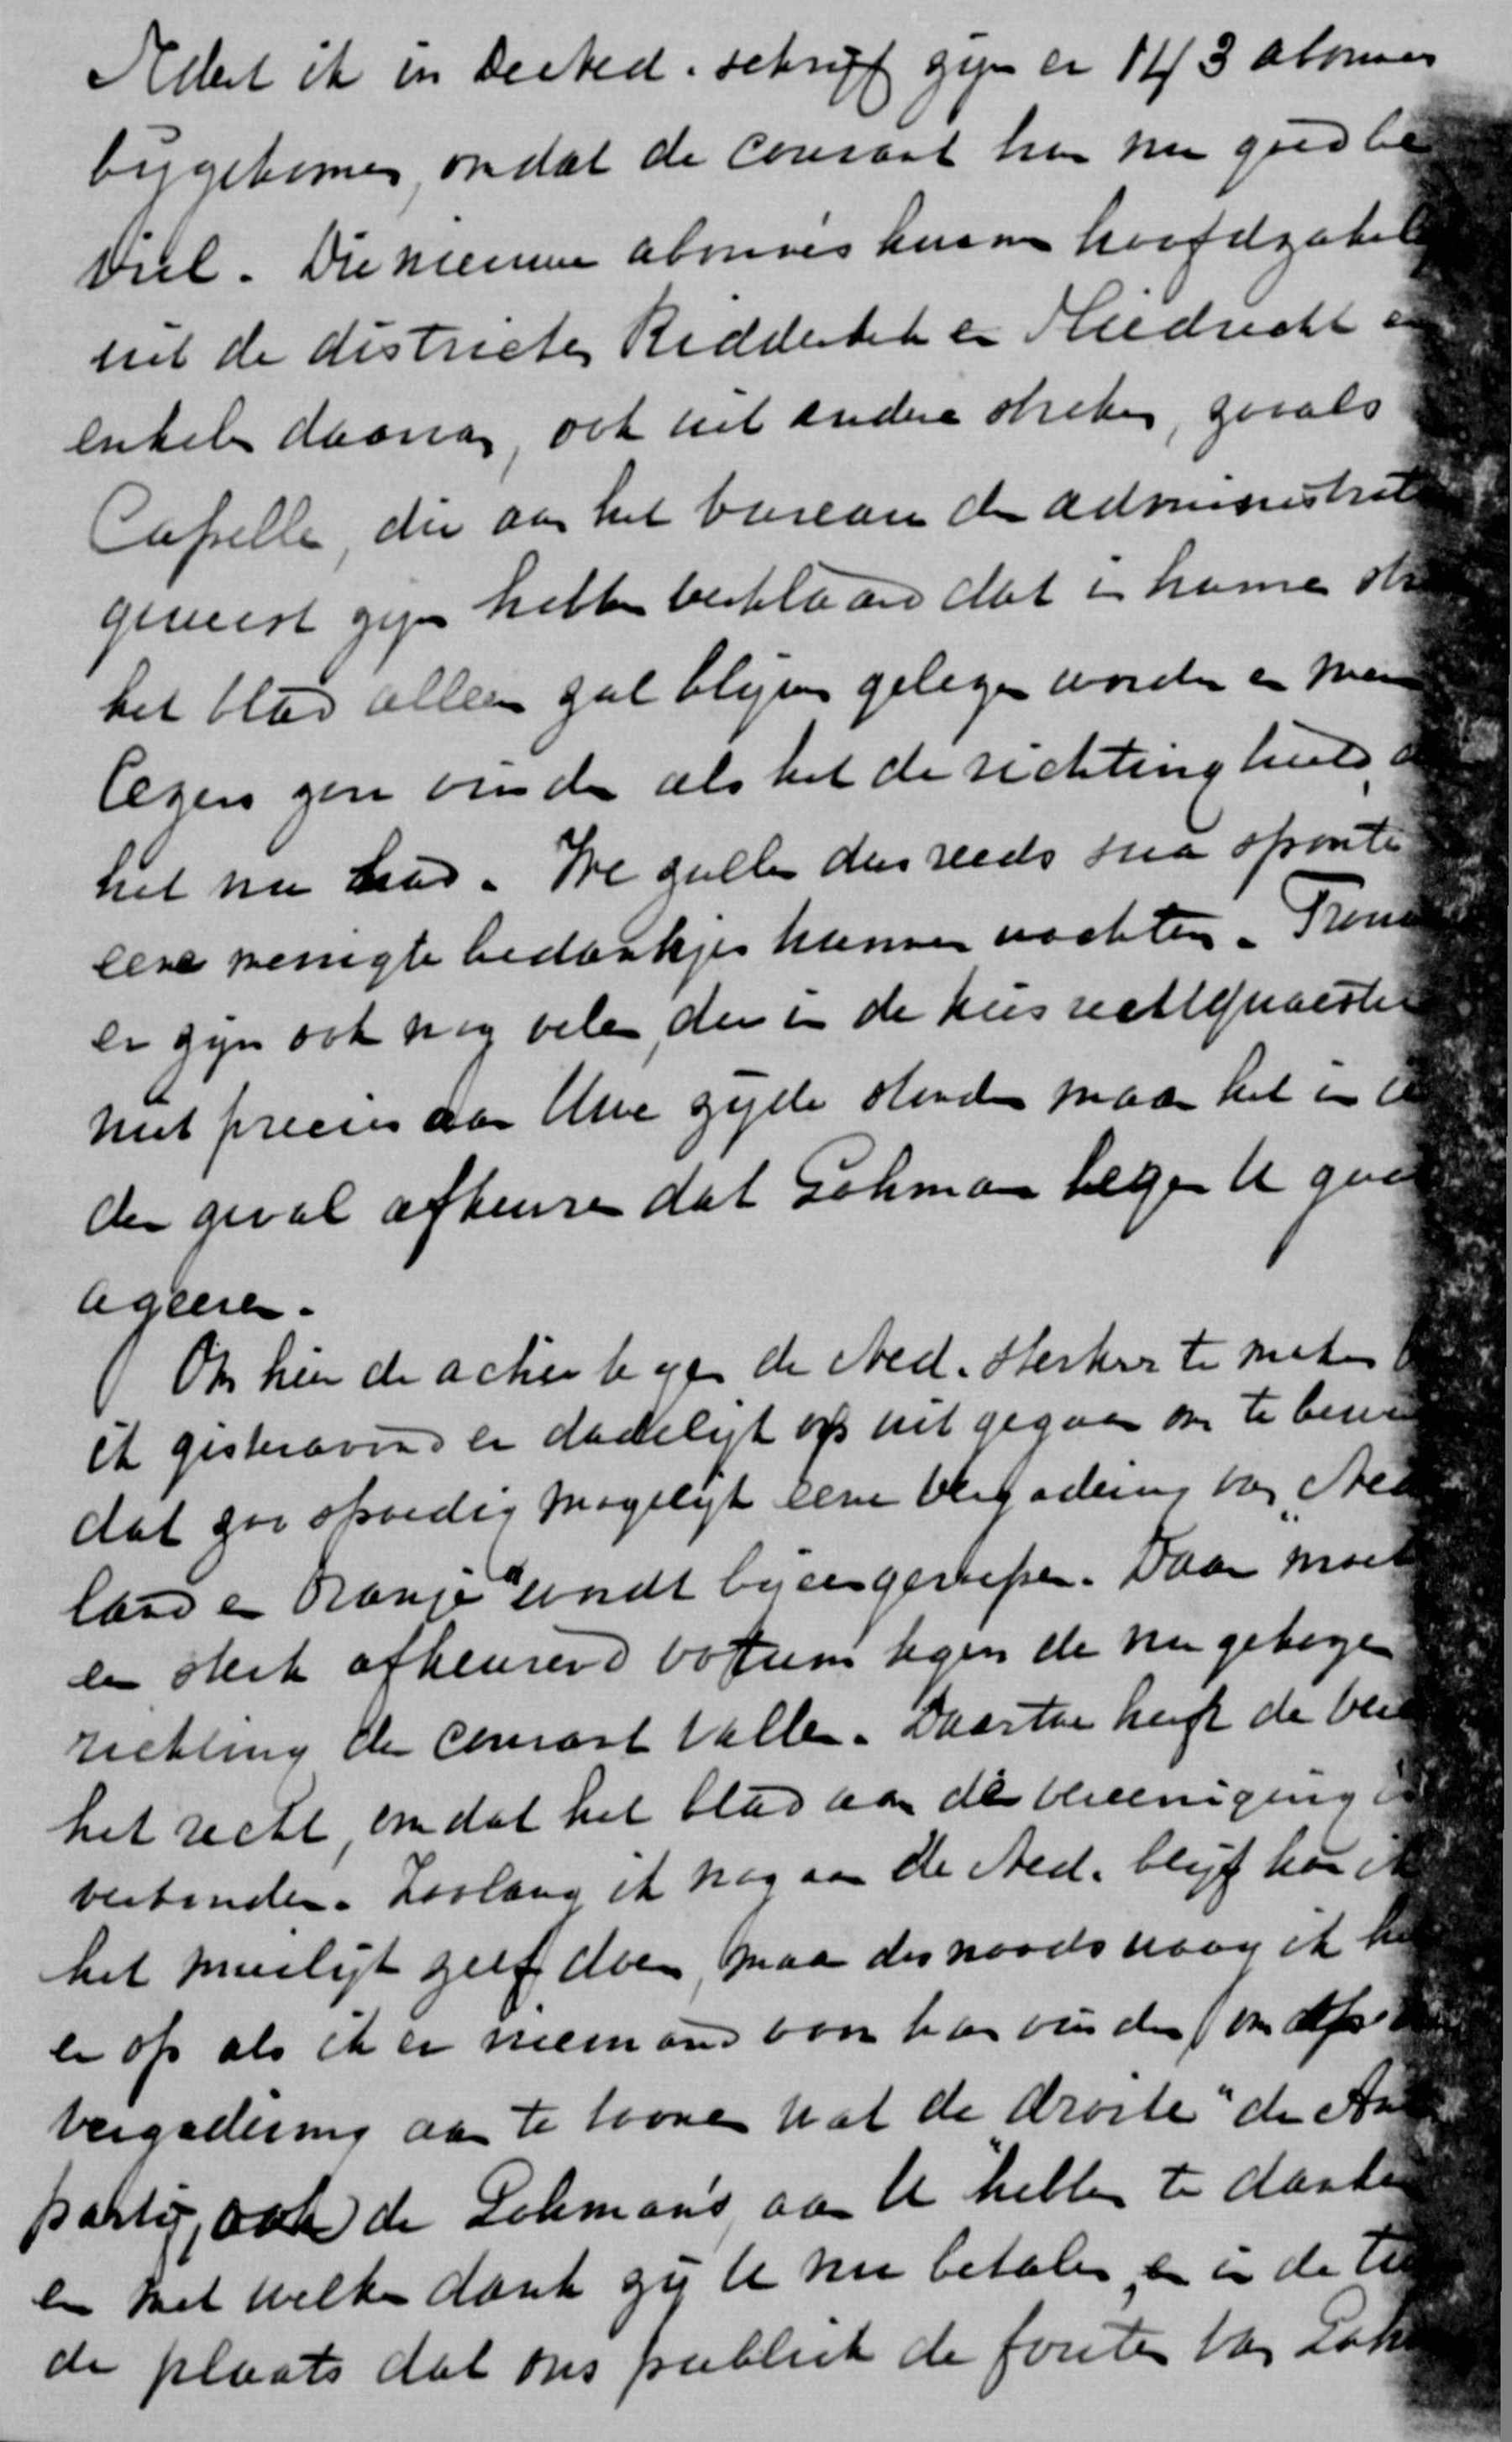 ik in de Ned. schrijf zijn er 143 abonnés
bijgekomen, omdat de courant hun nu goed be
viel. Die nieuwe abonnés kwamen hoofdzakel
uit de districten Ridderkerk en Sliedrecht en
enkelen daarvan, ook uit andere streken, zooals
Capelle, die aan het bureau der administrat
geweest zijn hebben verklaard dat in hunne str
het blad alleen zal blijven gelezen worden en meer
lezers zou vinden als het de richting hield, d
het nu had. We zullen dus reeds
eene menigte bedankjes kunnen wachten. Trouw
er zijn ook nog velen, die in de kiesrechtquaestie
niet precies aan Uwe zijde stonden maar het in
der geval afkeuren dat Lohman tegen U gaat
ageeren.
Om hier de actie tegen de Ned. sterker te maken b
ik gisteravond er dadelijk op uit gegaan om te bewe
dat zoo spoedig mogelijk eene vergadering van „Ned
land en Oranje" wordt bijeengeroepen. Daar moet
een sterk afkeurend votum tegen de nu gekozen
richting der courant vallen. Daartoe heeft de ver
het recht, omdat het blad aan de vereeniging is
verbonden. Zoolang ik nog aan de Ned. blijf kan ik
het moeilijk zelf doen, maar desnoods waag ik he
er op als ik er niemand voor kan vinden om op de
vergadering aan te toonen wat de „droite" der An
partij, ook de Lohman's, aan U hebben te danken
en met welken dank zij U nu betalen, en in de tw
de plaats dat ons publiek de fouten van Loh